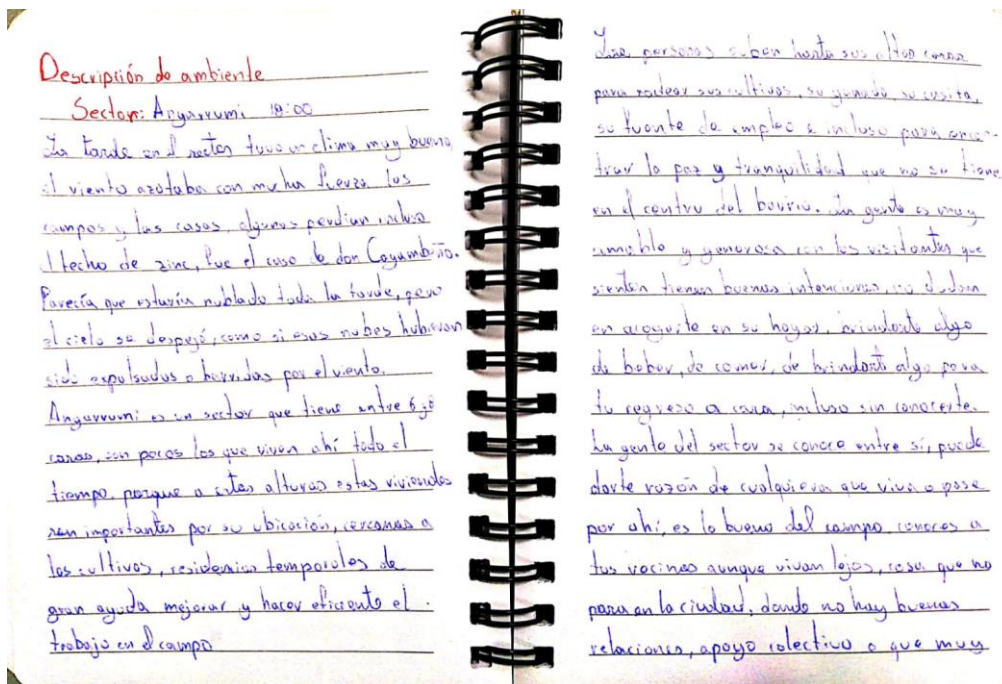 Descripción de ambiente
Sector: Angarrumi 18:00
La tarde en el sector tuvo un clima muy bueno,
el viento azotaba con mucha fuerza los
campos y las casas, algunos perdían incluso
el techo de zinc, fue el caso de don
Parecía que estaría nublado toda la tarde, pero
el cielo se despejó, como si esas nubes hubieran
sido expulsadas o barridas por el viento.
Angarrumi es un sector que tiene entre 6 y 8
casas, son pocos los que viven ahí todo el
tiempo, porque a estas alturas estas viviendas
son importantes por su ubicación, cercanas a
los cultivos, residencias temporales de
gran ayuda mejorar y hacer eficiente el
trabajo en el campo
Las personas suben hasta sus altas casas
para rodear sus cultivos, su ganado, su casita,
su fuente de empleo e incluso para encon-
trar la paz y tranquilidad que no se tiene
en el centro del barrio. La gente es muy
amable y generosa con los visitantes que
sienten tienen buenas intenciones, no dudan
en acogerte en su hogar, brindarte algo
de beber, de comer, de brindarte algo para
tu regreso a casa, incluso sin conocerte.
La gente del sector se conoce entre sí, puede
darte razón de cualquiera que viva o pase
por ahí, es lo bueno del campo, conoces a
tus vecinos aunque vivan lejos, cosa que no
pasa en la ciudad, donde no hay buenas
relaciones, apoyo colectivo o que muy